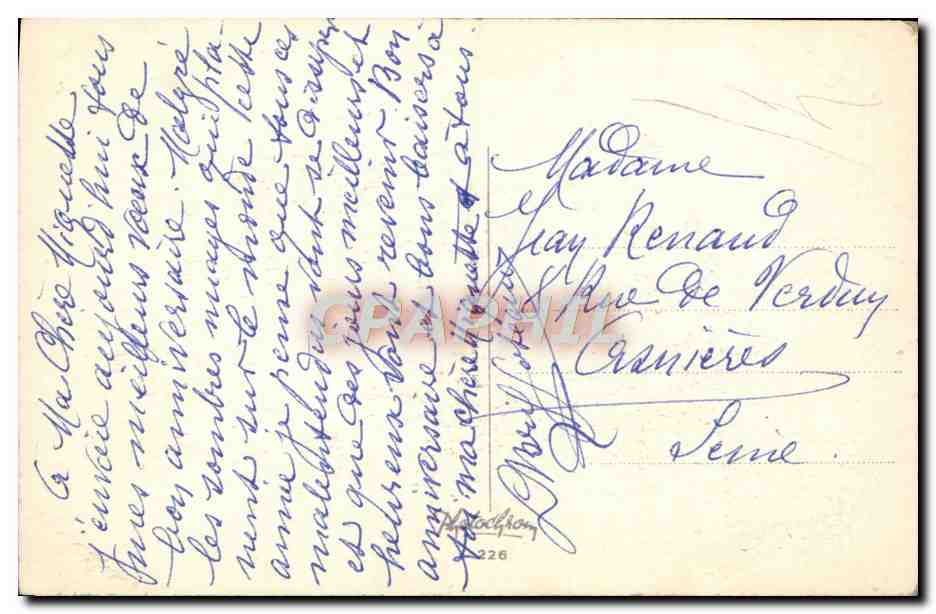 à Ma Chère Mignette
j'envoie aujourd'hui tous
mes meilleurs vœux de
bon anniversaire. Malgré
les sombres nuages qui pla-
nent sur le monde cette
année je pense que tous ces
malentendus vont se dissiper
et que des jours meilleurs et
heureux vont revenir Bon
anniversaire et bons baisers à
toi ma chère et à tous.
Madame
Jean Renaud
8 Rue de Verdun
Asnières
Seine.
Photochrom
226
CPAPHIL